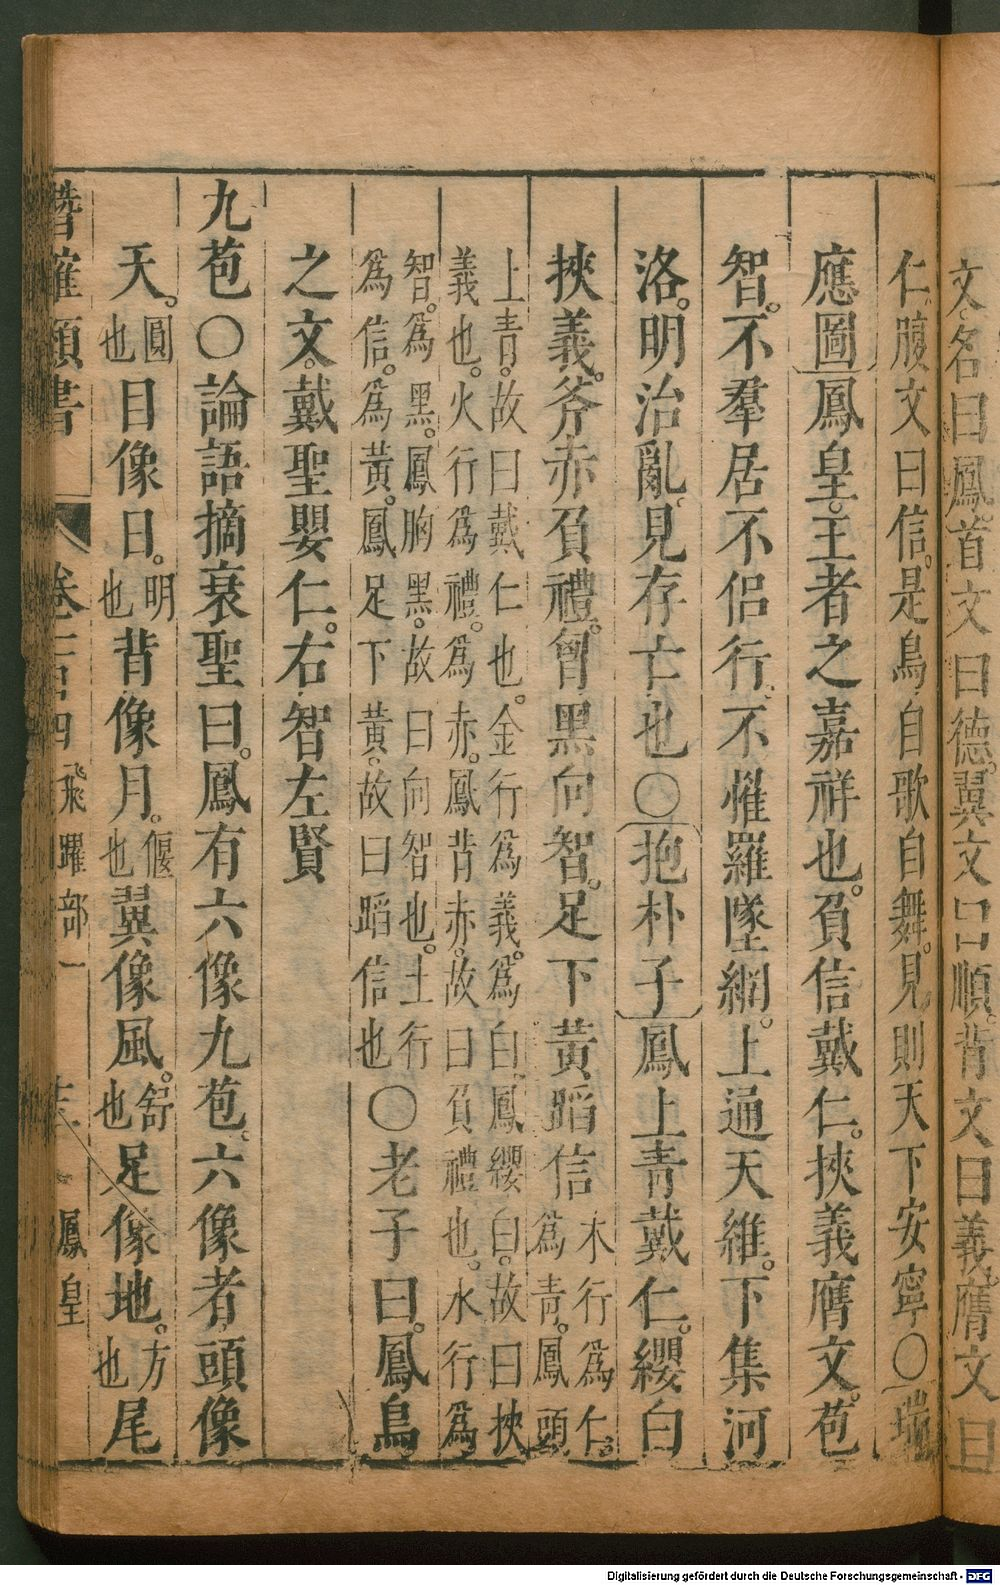 文名曰鳳首文曰德翼文曰順背文曰義膺文曰
仁腹文曰信是鳥自歌自舞見則天下安寧〇瑞
應圖鳳皇王者之嘉祥也負信戴仁挾義膺文苞
智不羣居不侶行不惟羅墜網上通天維下集河
洛明治亂見存亡也〇抱朴子鳳上青戴仁纓白
挾義斧赤負禮胷黑向智足下黃蹈信
木行為仁
為青鳳頭
上青故曰戴仁也金行為義為白鳳纓白故曰挾
義也火行為禮為赤鳳背赤故曰負禮也水行為
智為黑鳳胸黑故曰向智也土行
為信為黃鳳足下黃故曰蹈信也
〇老子曰鳳鳥
之文戴聖嬰仁右智左賢
九苞〇論語摘衰聖曰鳳有六像九苞六像者頭像
天圓也目像日明也背像月偃也翼像風舒也足像地方也尾
潛確類書 卷一百四 飛躍部一 鳳皇
Digitalisierung gefördert durch die Deutsche Forschungsgemeinschaft - DFG